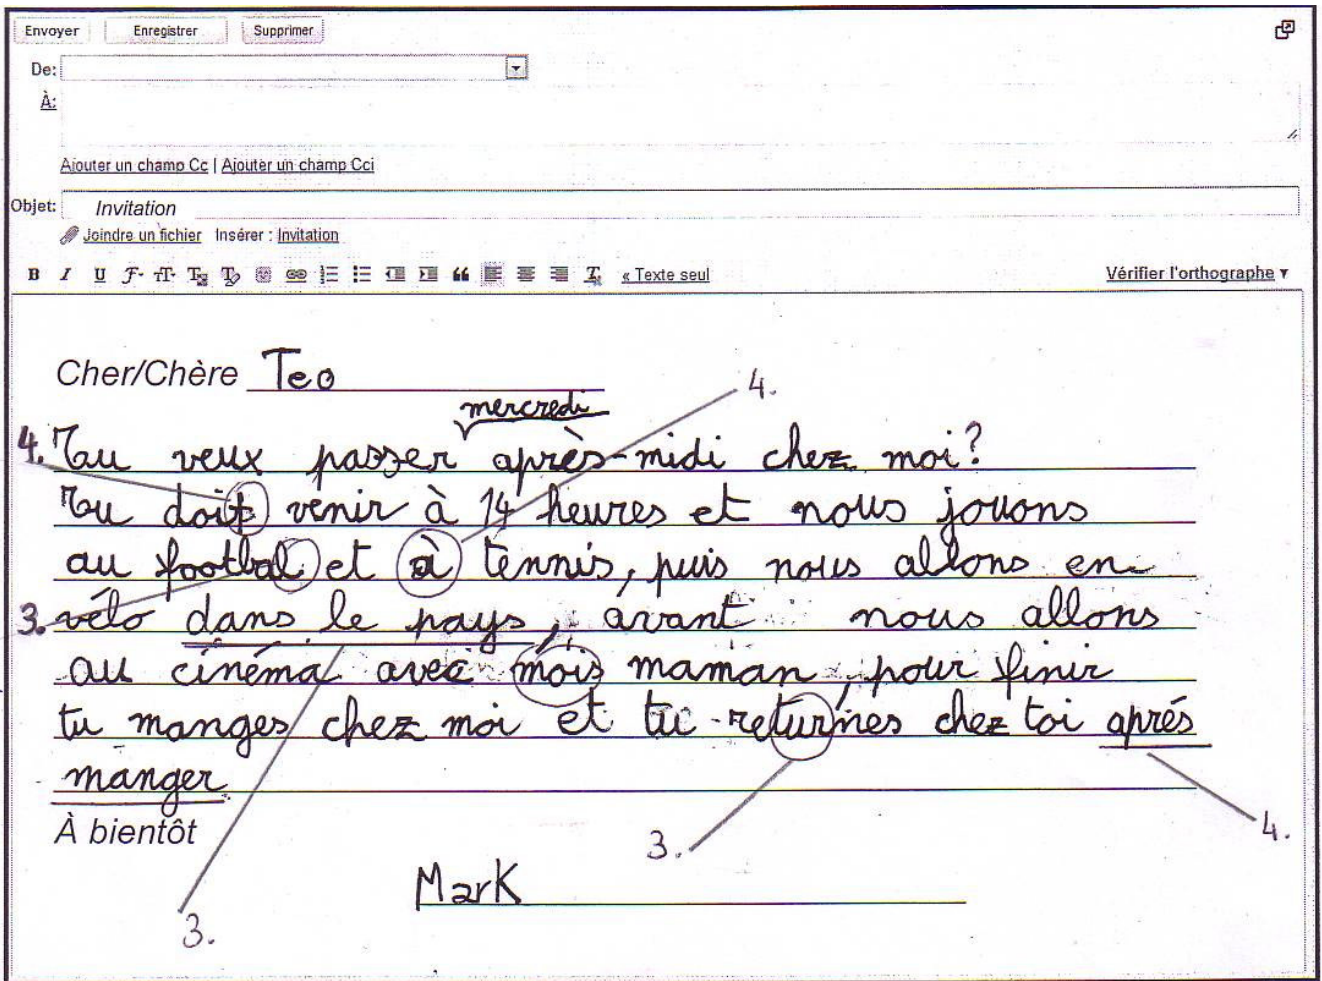 Envoyer Enregistrer Supprimer
De:
À:
Ajouter un champ Cc | Ajouter un champ Cci
Objet: Invitation
Joindre un fichier Insérer : Invitation
B I U « Texte seul Vérifier l'orthographe
Cher/Chère Teo
4.
mercredi
4. Tu veux passer après-midi chez moi?
Tu doit venir à 14 heures et nous jouons
au footbal et à tennis, puis nous allons en
3. vélo dans le pays, avant nous allons
au cinéma avec mois maman, pour finir
tu manges chez moi et tu returnes chez toi aprés
manger
À bientôt
3.
4.
Mark
3.